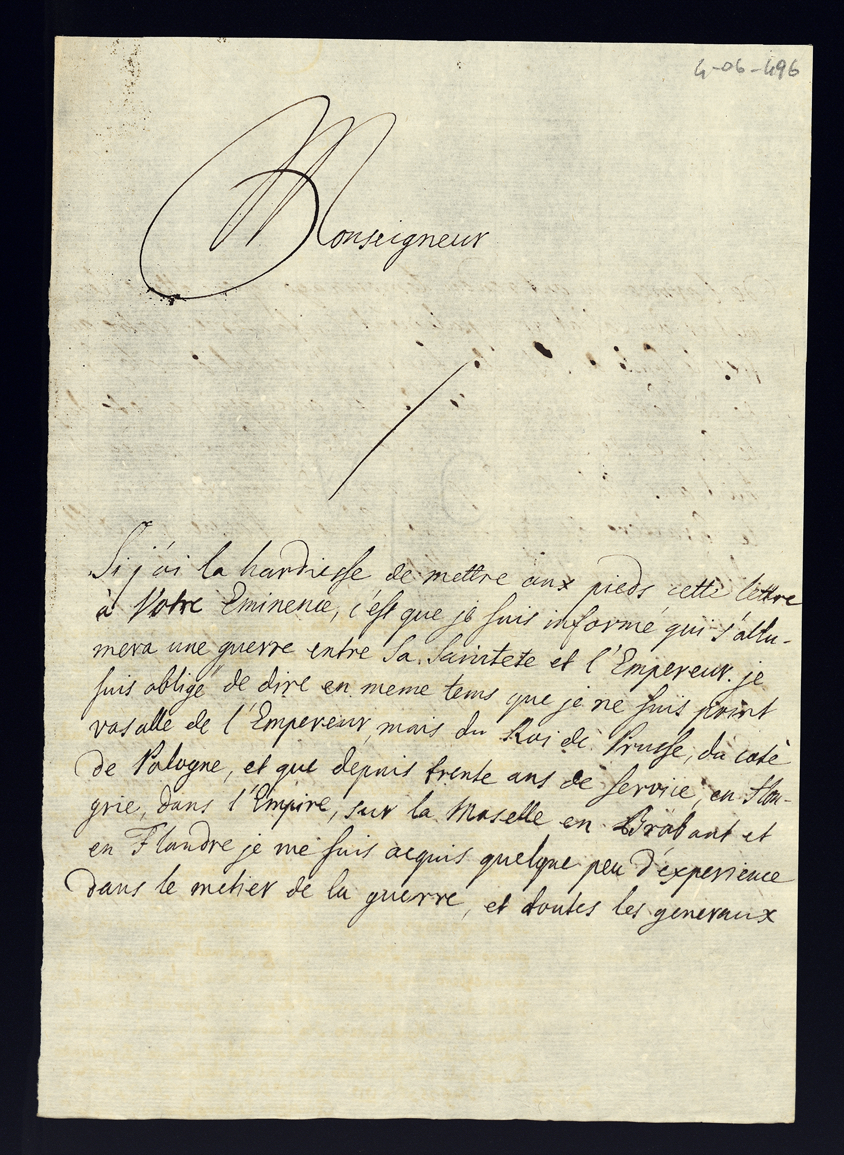 4-06-496
Monseigneur
Si j'ai la hardiesse de mettre aux pieds cette lettre
à Votre Eminence, c'est que je suis informé qui s'allu-
mera une guerre entre Sa Sainteté et l'Empereur. je
suis obligé de dire en meme tems que je ne suis point
vasalle de l'Empereur, mais du Roi de Prusse, du coté
de Pologne, et que depuis trente ans de service, en Hon-
grie, dans l'Empire, sur la Moselle en Brabant et
en Flandre je me suis acquis quelque peu d'experience
dans le métier de la guerre, et toutes les generaux